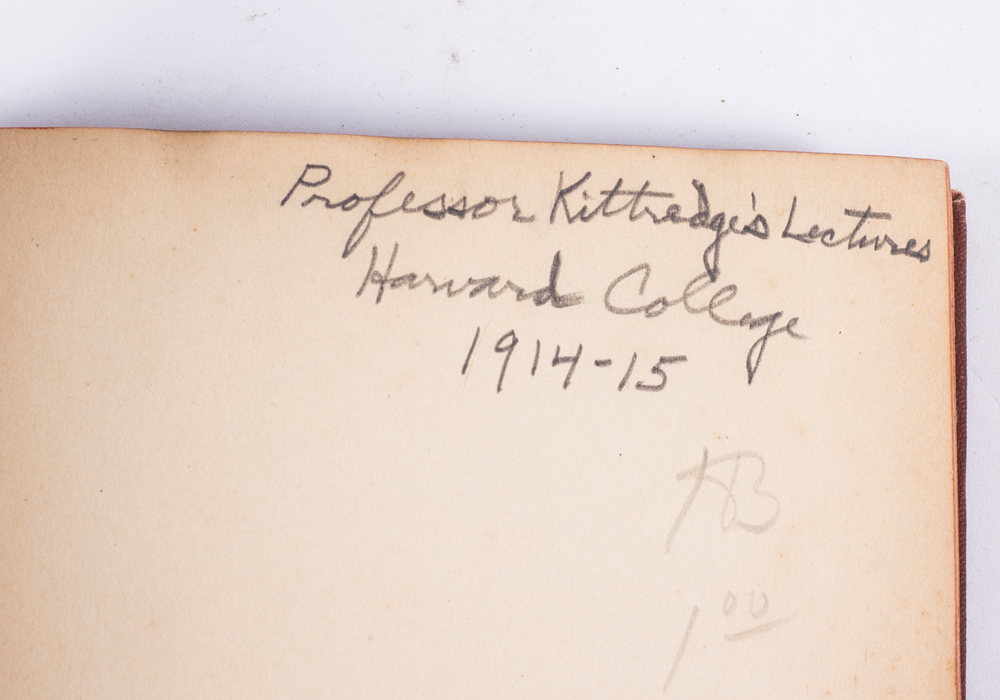 Professor Kittredge's Lectures
Harvard College
1914-15
1 00